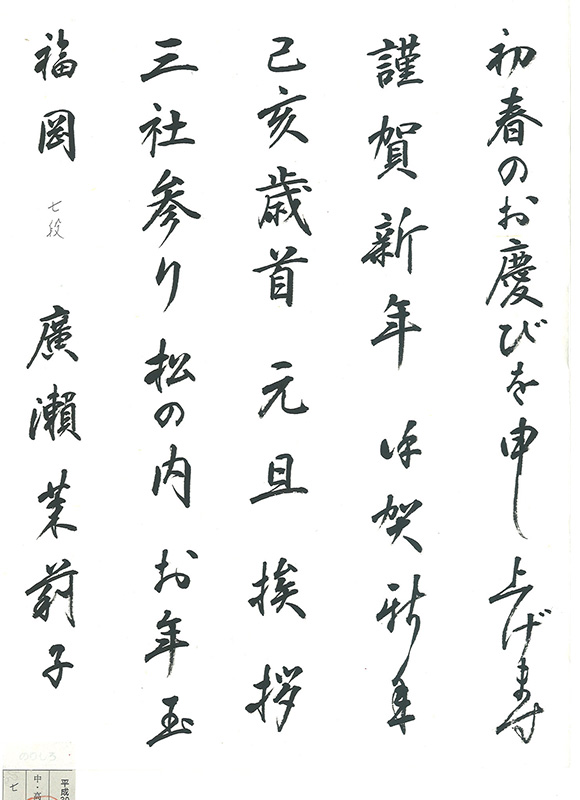 初春のお慶びを申し上げます
謹賀新年 謹賀新年
己亥歳首 元旦 挨拶
三社参り 松の内 お年玉
福岡 七段 廣瀬茉莉子
のりしろ
平成30
中・高
七